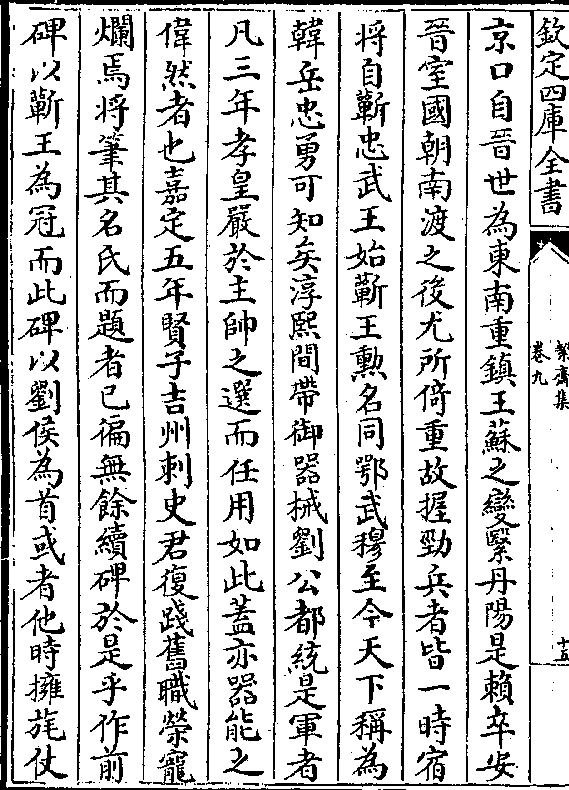 欽定四庫全書
絜齋集
卷九
十五
京口自晉世為東南重鎮王蘇之變緊丹陽是賴卒安
晉室國朝南渡之後尤所倚重故握勁兵者皆一時宿
将自蘄忠武王始蘄王勳名同鄂武穆至今天下稱為
韓岳忠勇可知矣淳熙間帶御器械劉公都統是軍者
凡三年孝皇嚴於主帥之選而任用如此蓋亦器能之
偉然者也嘉定五年賢子吉州刺史君復踐舊職榮寵
爛焉将筆其名氏而題者已徧無餘續碑於是乎作前
碑以蘄王為冠而此碑以劉侯為首或者他時擁旄仗